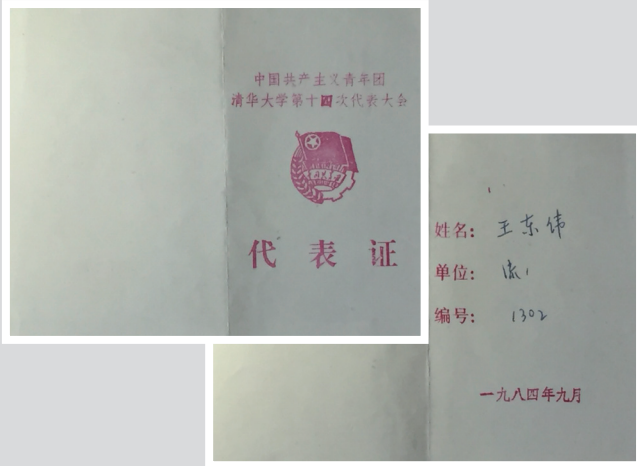 中国共产主义青年团
清华大学第十四次代表大会
代表证
姓名: 王东伟
单位: 流1
编号: 1302
一九八四年九月